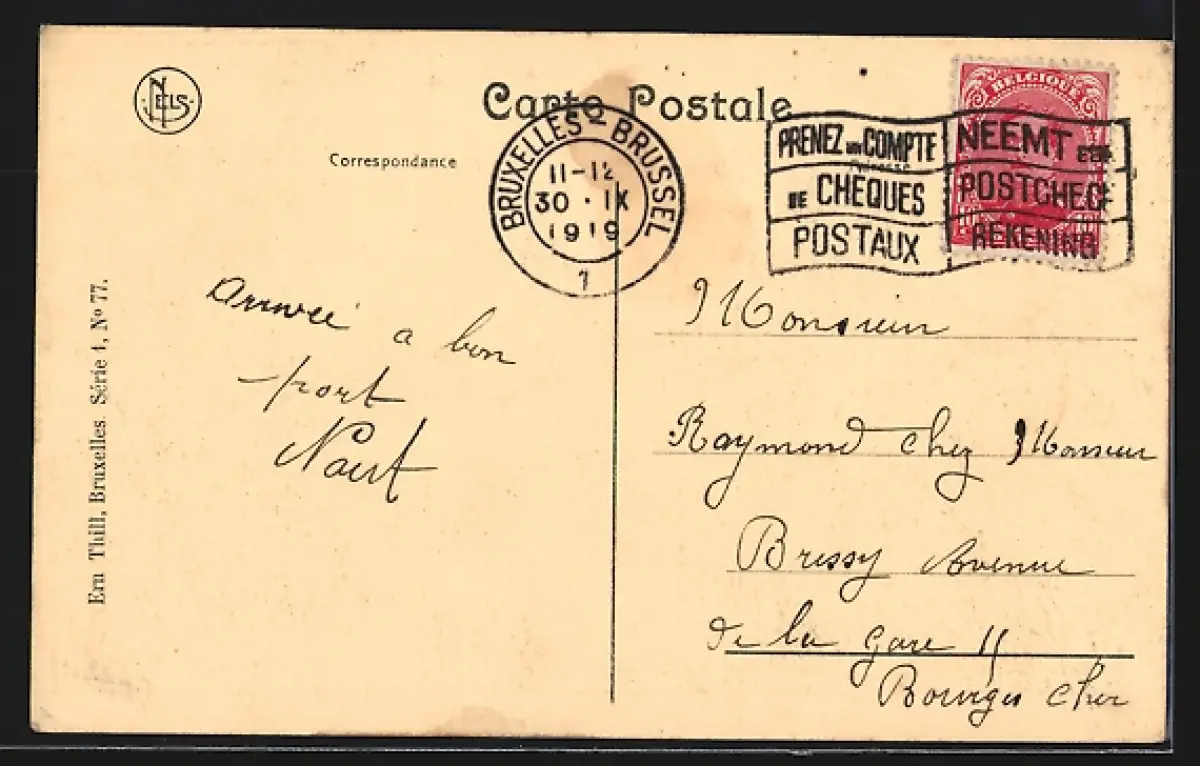 NELS
Carte Postale
Correspondance
BRUXELLES - BRUSSEL
11-12
30 · IX
1919
1
PRENEZ UN COMPTE
DE CHEQUES
POSTAUX
NEEMT EEN
POSTCHECK
REKENING
BELGIQUE
Adresse
Ern Thill, Bruxelles. Série 1, No 77.
Arrivée a bon
port
Monsieur
Raymond chez Monsieur
Bressy Avenue
de la gare 11
Bourges Cher